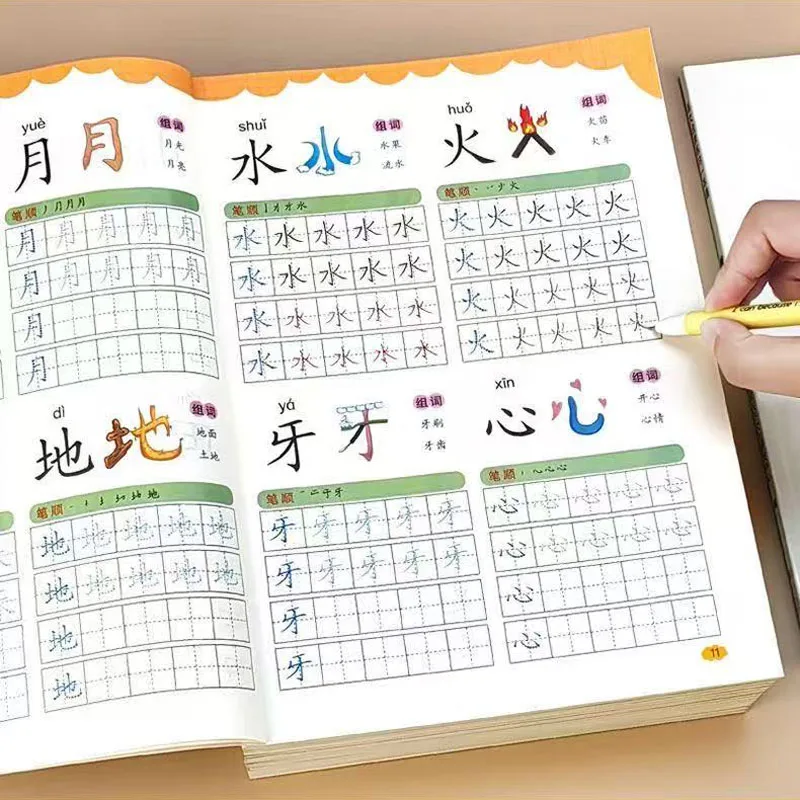 yuè
月
组词
月光
月亮
笔顺
月 月 月 月 月
月 月 月 月 月
月
月
shuǐ
水
组词
水果
流水
笔顺
水 水 水 水 水
水 水 水 水 水
水 水 水 水 水
水 水 水 水 水
huǒ
火
组词
火焰
火车
笔顺
火 火 火 火 火
火 火 火 火 火
火 火 火 火 火
火 火 火 火 火
dì
地 地
组词
地面
土地
笔顺
地 地 地 地 地
地 地 地 地 地
地
地
yá
牙 牙
组词
牙刷
牙齿
笔顺
牙 牙 牙 牙 牙
牙 牙 牙 牙 牙
牙
牙
xīn
心 心
组词
开心
心情
笔顺
心 心 心 心 心
心 心 心 心 心
心
心
11
I can because I